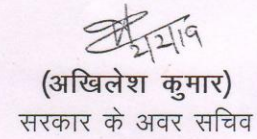 2/2/19
(अखिलेश कुमार)
सरकार के अवर सचिव